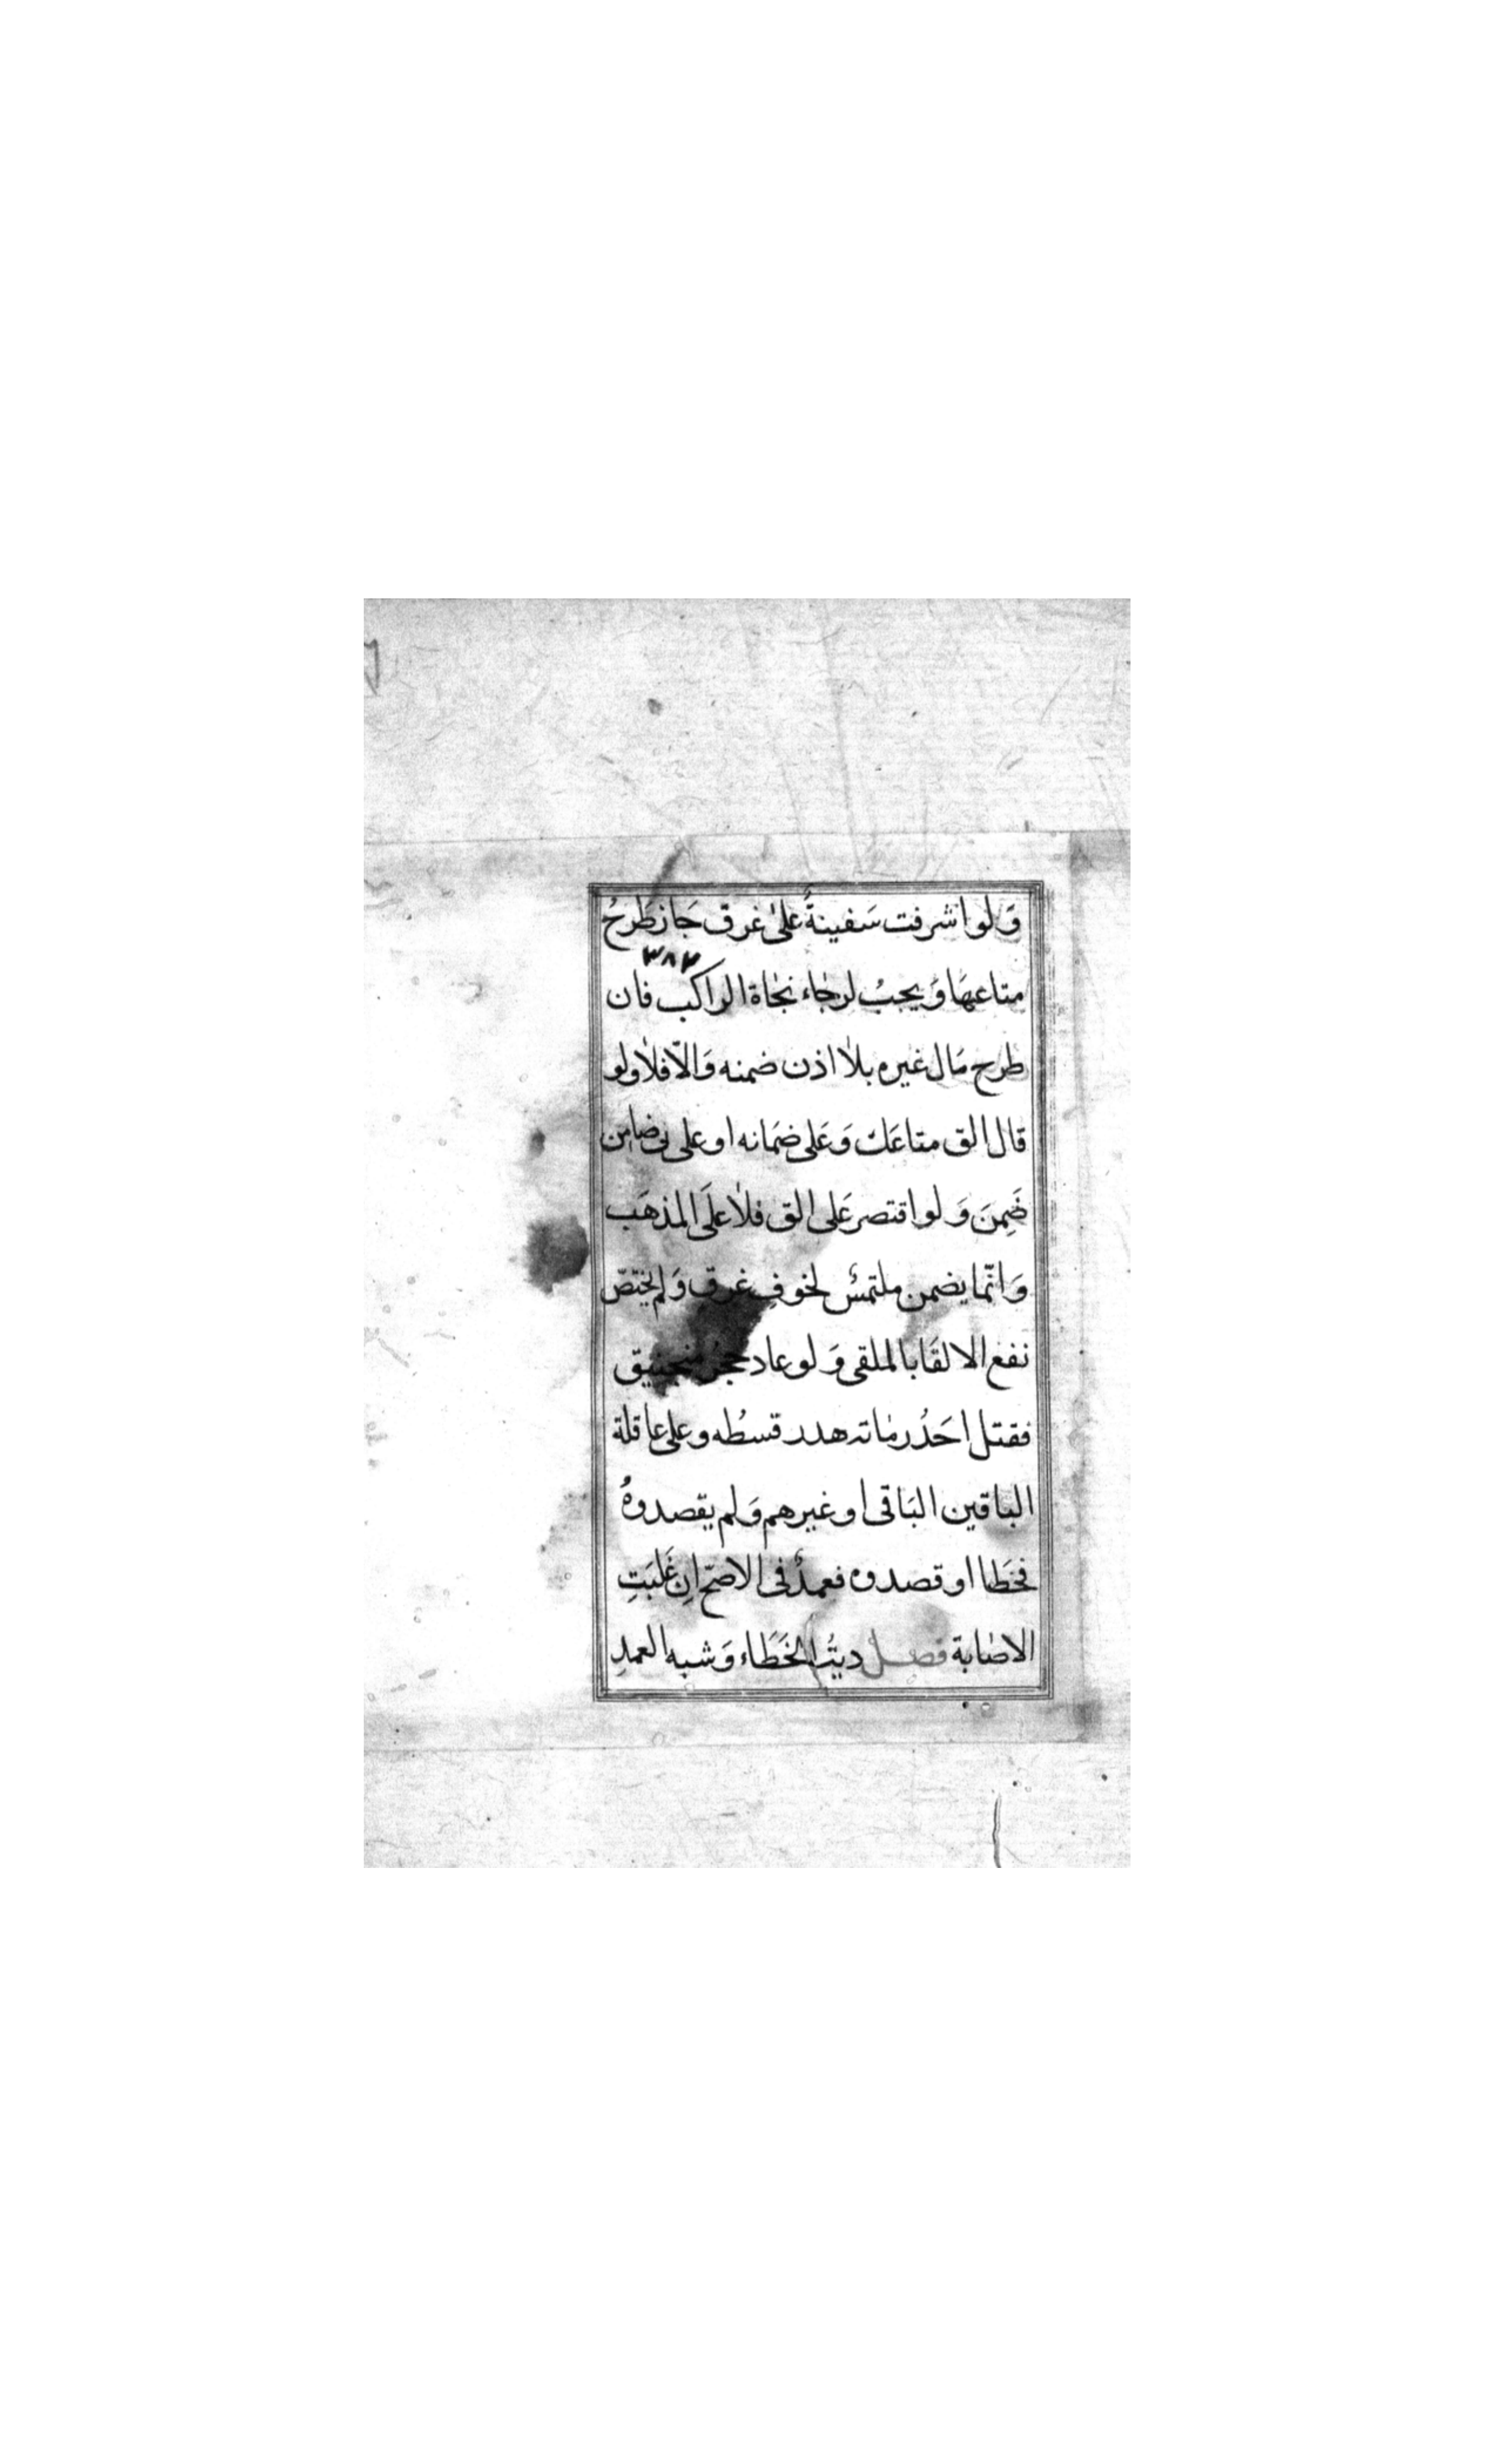 وَلو اشرفت سَفينةٌ علىٰ غرق جَاز طَرحُ
٣٨٢
متاعهَا وَيجبُ لرجَاء نجَاة الراكب فان
طرح مَال غيره بلا اذن ضمنه وَالاّ فلا ولو
قال الق متاعَك وَعَلى ضمَانه او على انى ضامن
ضَمِنَ وَلو اقتصر عَلى الق فلا علَى المذهَب
وَانّما يضمن ملتمسٌ لخوفِ غرق وَلم يختصّ
نفع الالقَا بالملقى وَلو عاد حجرُ منجنيق
فقتل احَدُ رمَاته هدر قسطُه وعلى عاقلة
الباقين البَاقى او غيرهم وَلم يقصدوهُ
فخطَاا او قصدوه فعمدٌ فى الاصحّ ان غَلبَتِ
الاصَابة فصل ديتُ الخَطَاء وَشبه العمدِ